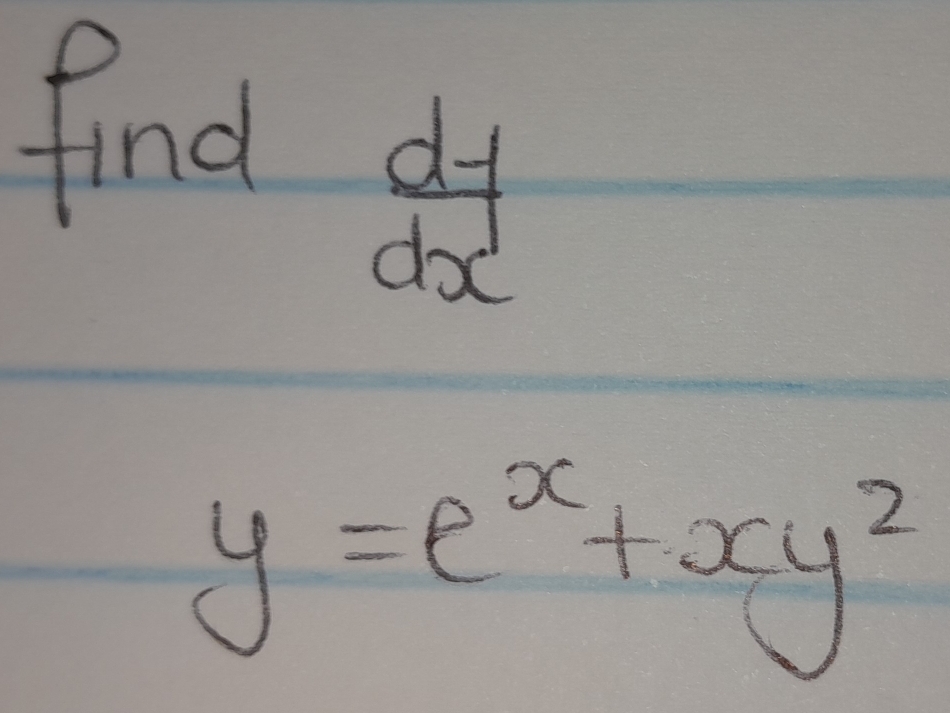 find dy/dx
y = e^x + xy^2